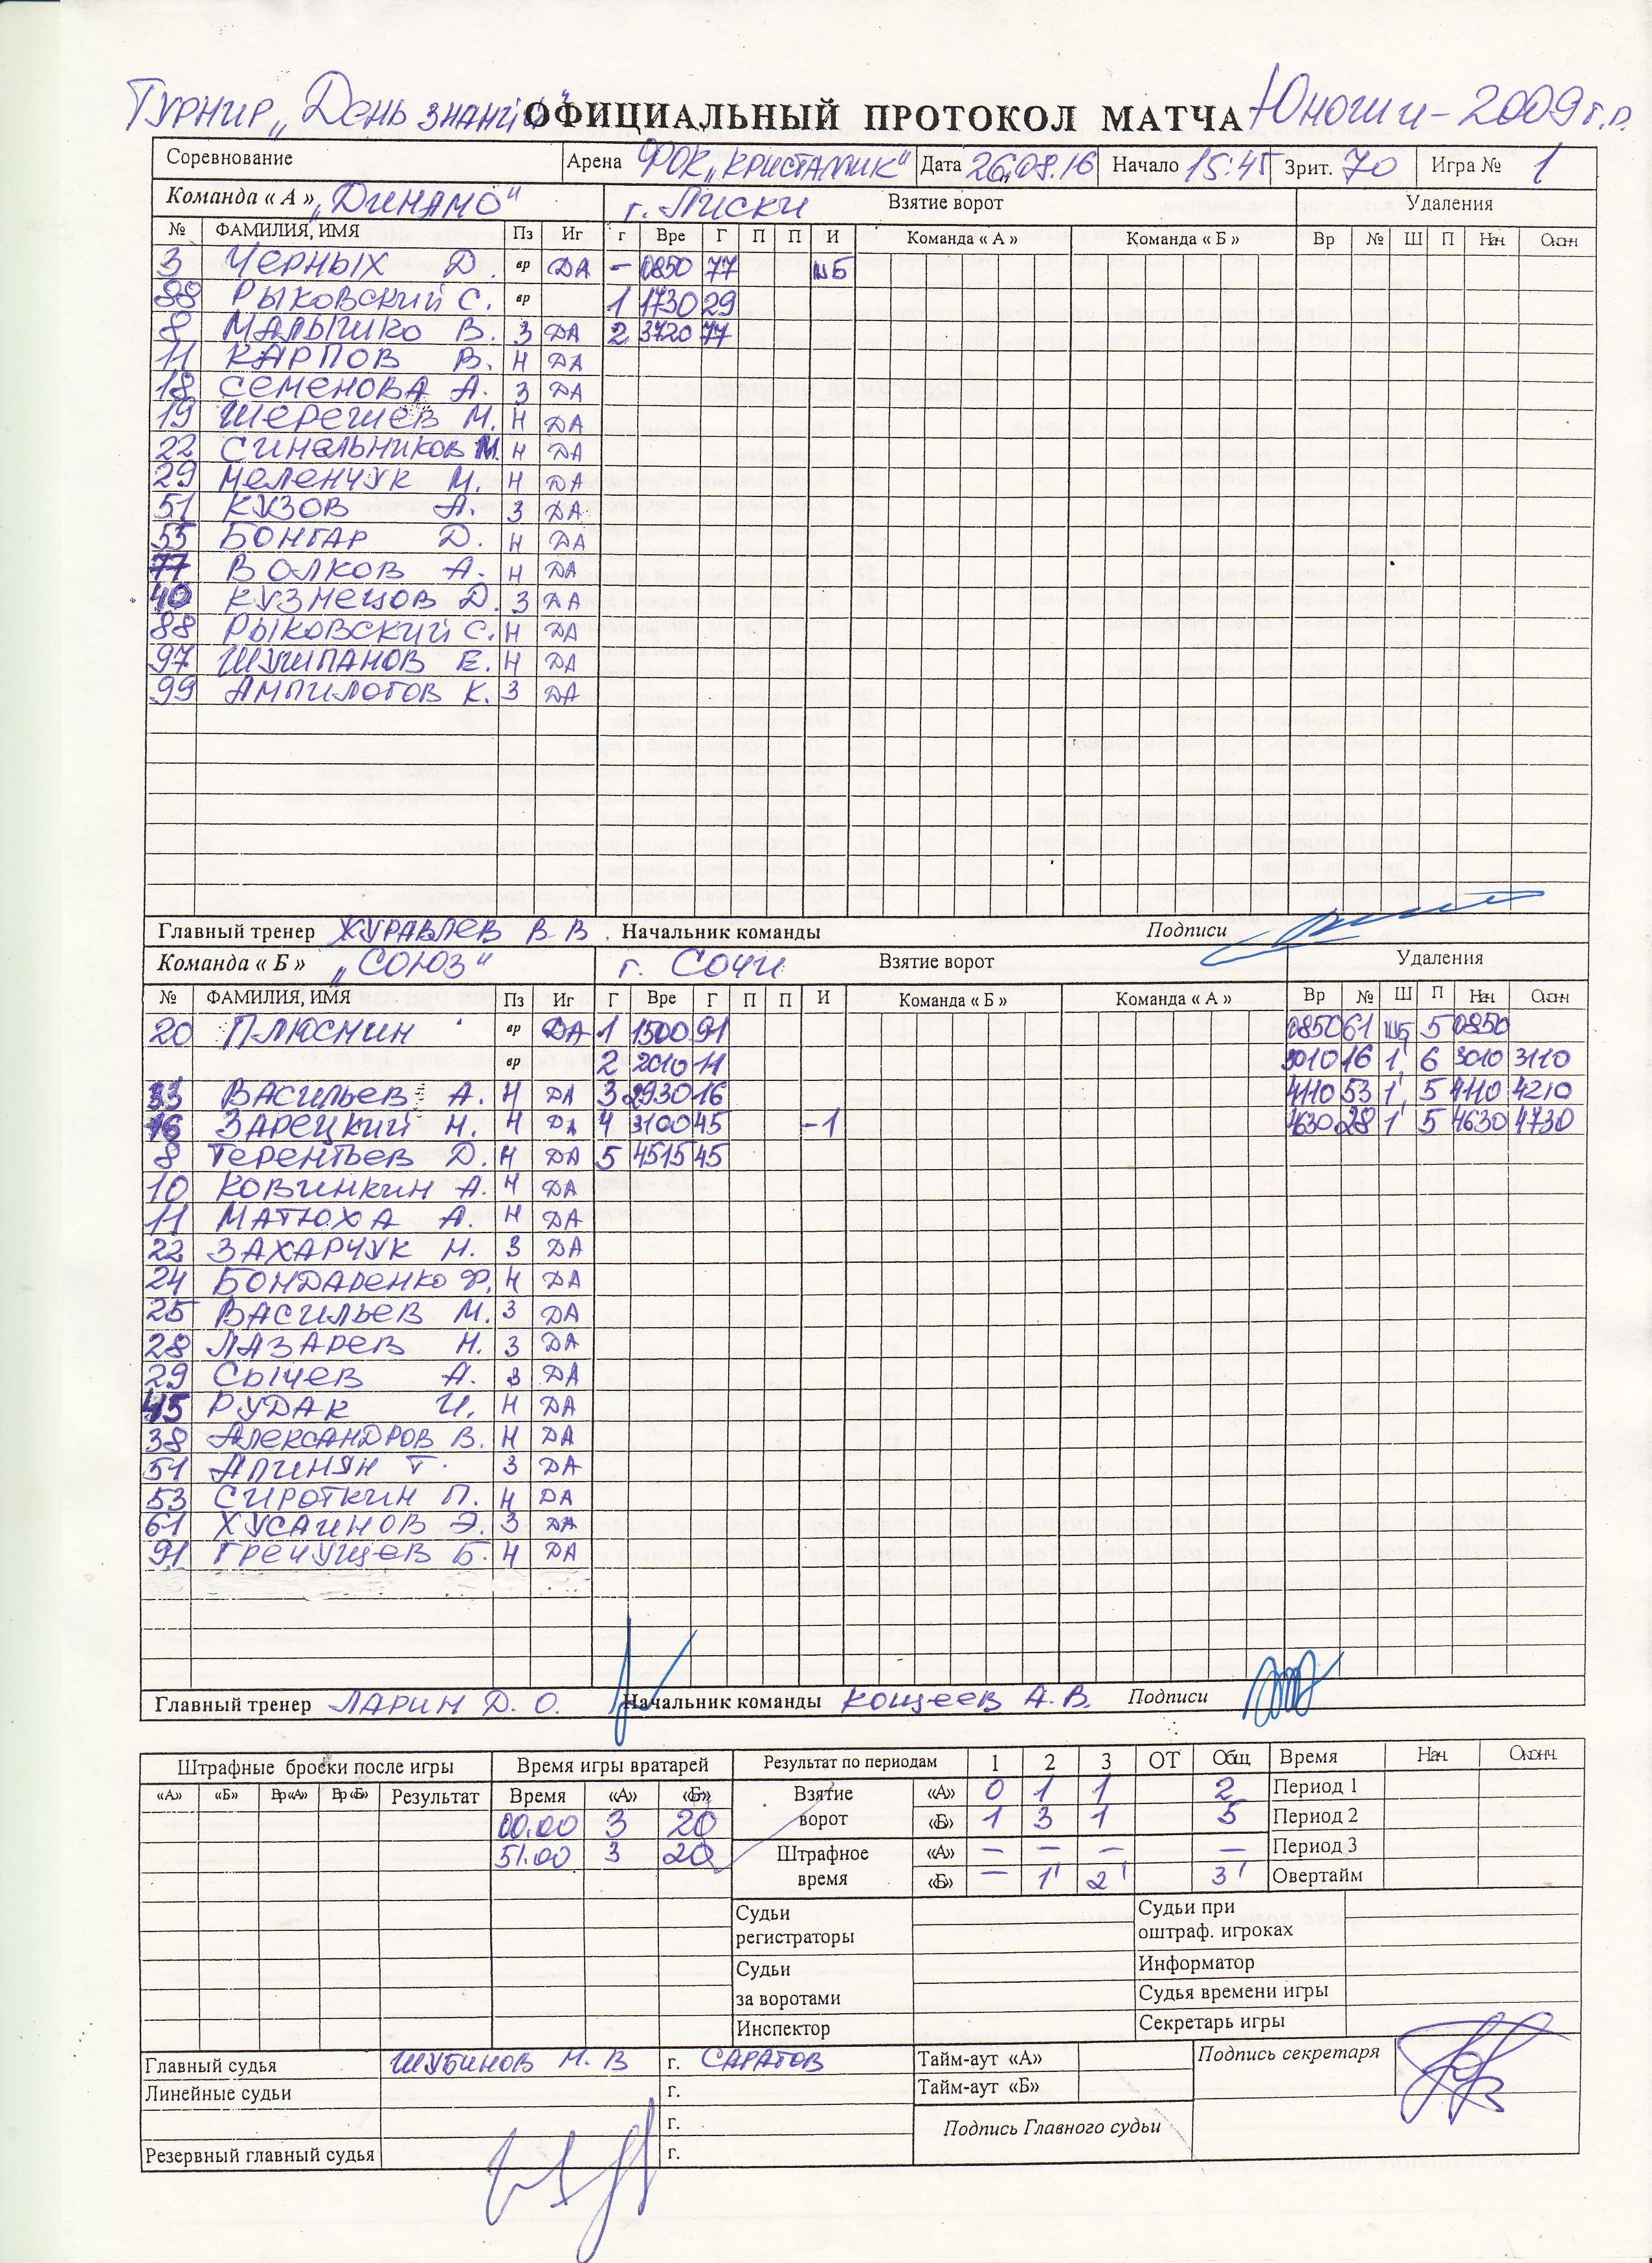 Турнир „День знаний" ОФИЦИАЛЬНЫЙ ПРОТОКОЛ МАТЧА Юноши - 2009 г.р.
Соревнование Арена ФОК „КРИСТАЛЛИК" Дата 26.08.16 Начало 15:45 Зрит. 70 Игра № 1
Команда « А » „ДИНАМО" г. Лиски Взятие ворот Удаления
№ ФАМИЛИЯ, ИМЯ Пз Иг г Вре Г П П И Команда « А » Команда « Б » Вр № Ш П Нач Окон
3 ЧЕРНЫХ Д. вр ДА – 0850 77 ШБ
88 РЫКОВСКИЙ С. вр 1 1730 29
8 МАЛЫГИКО В. З ДА 2 3720 77
11 КАРПОВ В. Н ДА
18 СЕМЕНОВА А. З ДА
19 ШЕРЕШЕВ М. Н ДА
22 СИНЕЛЬНИКОВ М. Н ДА
29 МЕЛЕНЧУК М. Н ДА
51 КУЗОВ А. З ДА
55 БОНГАР Д. Н ДА
77 ВОЛКОВ А. Н ДА
40 КУЗНЕЦОВ Д. З ДА
88 РЫКОВСКИЙ С. Н ДА
97 ШУШПАНОВ Е. Н ДА
99 АМПИЛОГОВ К. З ДА
Главный тренер ЖУРАВЛЕВ В В. Начальник команды Подписи
Команда « Б » „СОЮЗ" г. СОЧИ Взятие ворот Удаления
№ ФАМИЛИЯ, ИМЯ Пз Иг Г Вре Г П П И Команда « Б » Команда « А » Вр № Ш П Нач Окон
20 ПЛЮСНИН вр ДА 1 1500 91 0850 61 ШБ 5 0850
вр 2 2010 11 3010 16 1' 6 3010 3110
33 ВАСИЛЬЕВ А. Н ДА 3 2930 16 4110 53 1' 5 4110 4210
16 ЗАРЕЦКИЙ Н. Н ДА 4 3100 45 -1 4630 28 1' 5 4630 4730
8 ТЕРЕНТЬЕВ Д. Н ДА 5 4515 45
10 КОВИНКИН А. Н ДА
11 МАТЮХА А. Н ДА
22 ЗАХАРЧУК Н. З ДА
24 БОНДАРЕНКО Ф. Н ДА
25 ВАСИЛЬЕВ М. З ДА
28 ЛАЗАРЕВ Н. З ДА
29 СЫЧЕВ А. З ДА
45 РУДАК И. Н ДА
38 АЛЕКСАНДРОВ В. Н ДА
51 АПИНЯН Т. З ДА
53 СИРОТКИН П. Н ДА
61 ХУСАИНОВ Э. З ДА
91 ГРЕЧУЩЕВ Б. Н ДА
Главный тренер ЛАРИН Д. О. Начальник команды КОЩЕЕВ А. В. Подписи
Штрафные броски после игры Время игры вратарей Результат по периодам 1 2 3 ОТ Общ Время Нач. Оконч.
«А» «Б» Вр«А» Вр«Б» Результат Время «А» «Б» Взятие «А» 0 1 1 2 Период 1
00.00 3 20 ворот «Б» 1 3 1 5 Период 2
51.00 3 20 Штрафное «А» – – – – Период 3
время «Б» – 1' 2' 3' Овертайм
Судьи Судьи при
регистраторы оштраф. игроках
Судьи Информатор
за воротами Судья времени игры
Инспектор Секретарь игры
Главный судья ШУБИНОВ Н. В г. САРАТОВ Тайм-аут «А» Подпись секретаря
Линейные судьи г. Тайм-аут «Б»
г. Подпись Главного судьи
Резервный главный судья г.